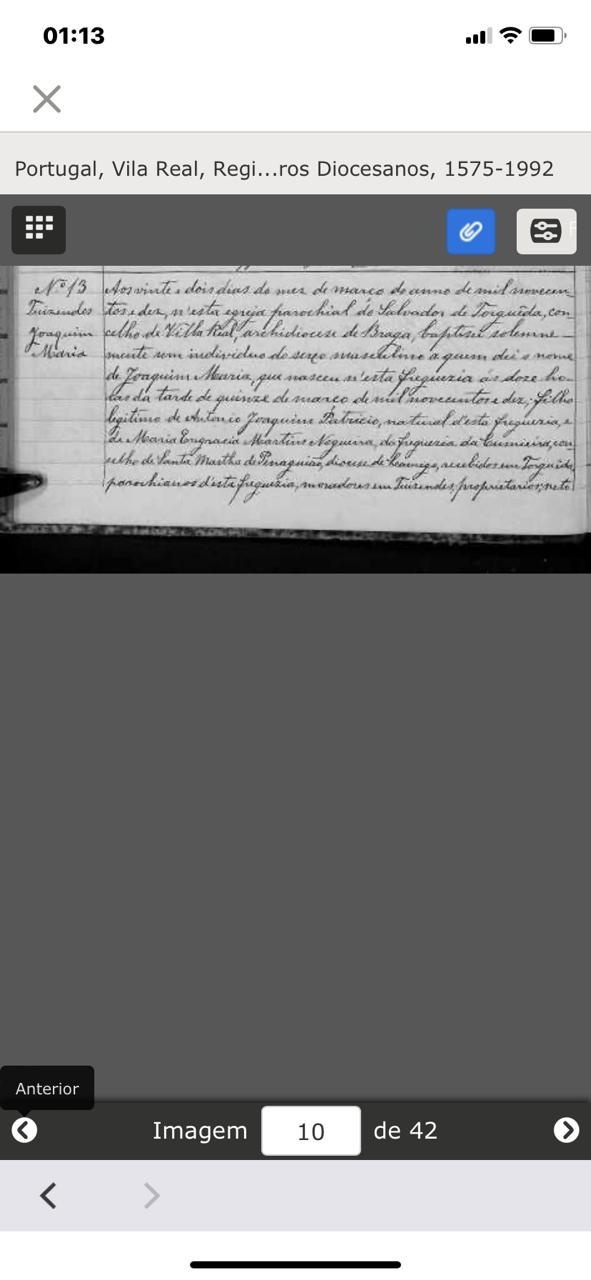 01:13
Portugal, Vila Real, Regi...ros Diocesanos, 1575-1992
Nº 13
Tuizendes
Joaquim
Maria
Aos vinte e dois dias do mez de março do anno de mil novecen_
tos e dez, n'esta egreja parochial do Salvador de Torgueda, con_
celho de Villa Real, archidiocese de Braga, baptisei solemne_
mente um individuo do sexo masculino a quem dei o nome
de Joaquim Maria, que nasceu n'esta freguezia ás doze ho_
ras da tarde de quinze de março de mil novecentos e dez; filho
legitimo de Antonio Joaquim Patricio, natural d'esta freguezia, e
de Maria Engracia Martins Nogueira, da freguezia da Cumieira, con_
selho de Santa Martha de Penaguião, diocese de Lamego, recebidos em Torgueda,
parochianos d'esta freguezia, moradores em Tuizendes, proprietarios; neto
Anterior
Imagem 10 de 42